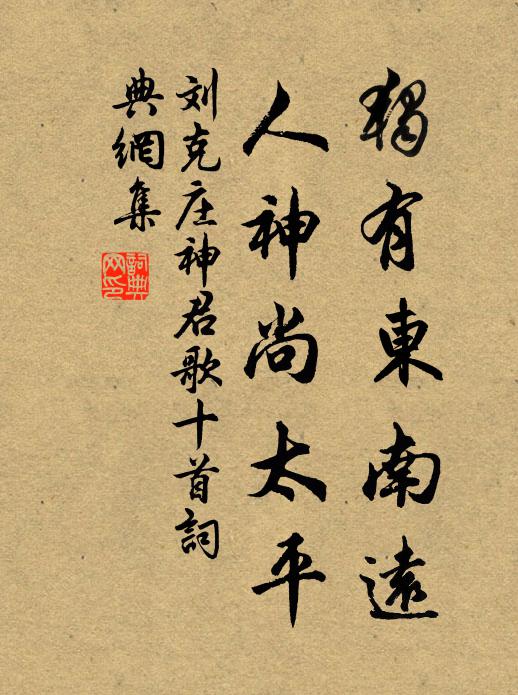 獨有東南遠
人神尚太平
刘克庄神君歌十首詞
典網集
詞典
网印